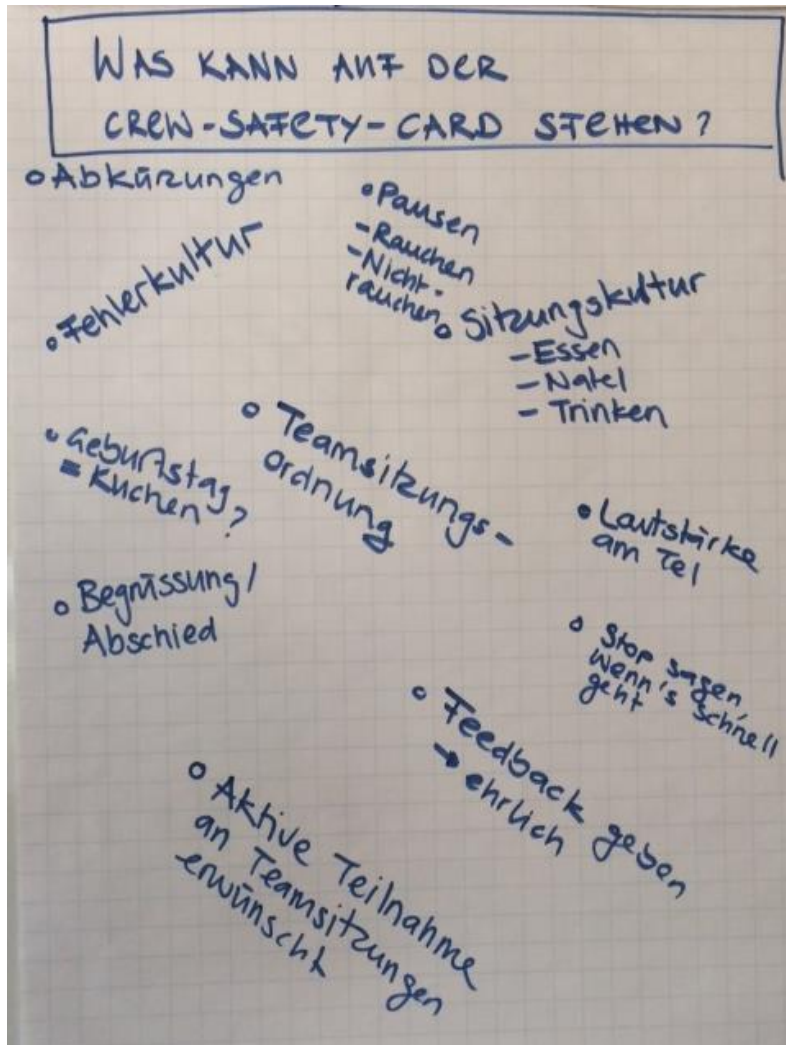 WAS KANN AUF DER
CREW-SAFETY-CARD STEHEN?
• Abkürzungen
• Pausen
- Rauchen
- Nicht-
rauchen
• Fehlerkultur
• Sitzungskultur
- Essen
- Natel
- Trinken
• Geburtstag
= Kuchen?
• Teamsitzungs-
ordnung
• Lautstärke
am Tel
• Begrüssung/
Abschied
• Stop sagen,
wenn's schnell
geht
• Feedback geben
→ ehrlich
• Aktive Teilnahme
an Teamsitzungen
erwünscht